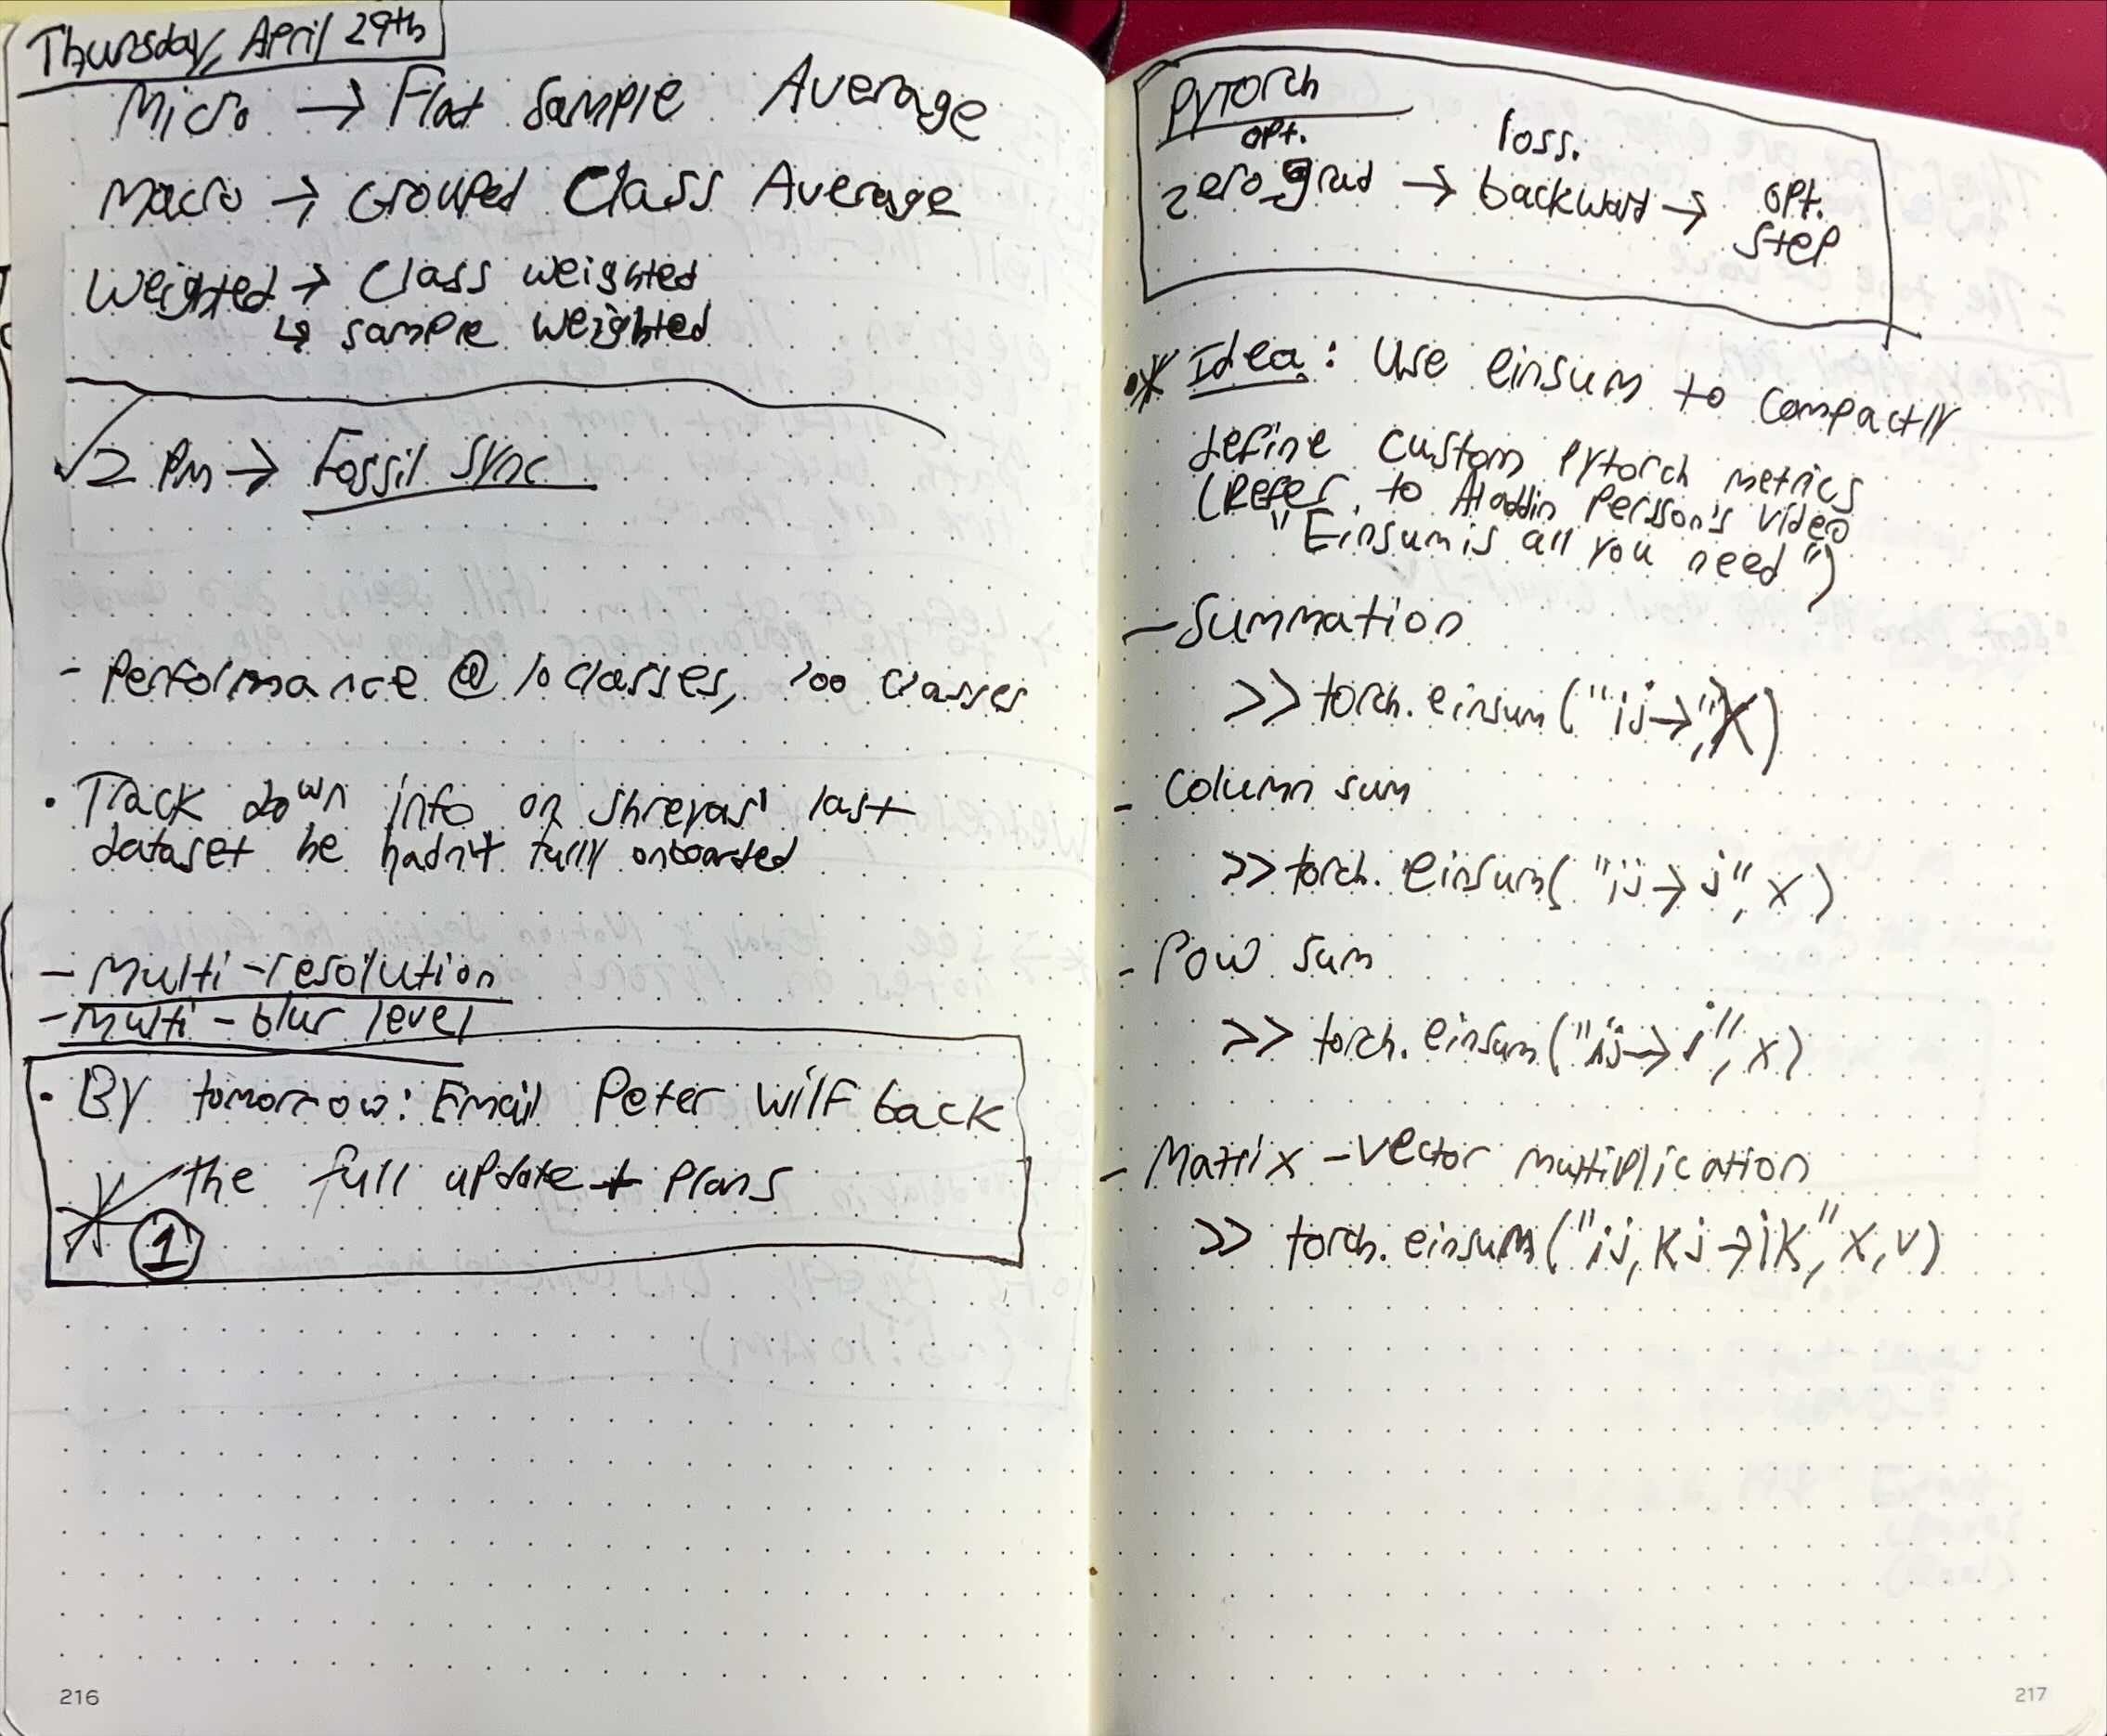 Thursday, April 29th
Micro → Flat Sample Average
Macro → Grouped Class Average
Weighted → Class weighted
↳ sample weighted
√2 PM → Fossil Sync
- Performance @ 10 classes, 100 classes
• Track down info on Shreyas' last
dataset he hadn't fully onboarded
- Multi-resolution
- Multi-blur level
• By tomorrow: Email Peter Wilf back
* the full update + Plans
1
216
Pytorch
opt. loss.
zero_grad → backward → opt.
step
•* Idea: Use einsum to compactly
define custom Pytorch metrics
(Refer to Aladdin Persson's video
"Einsum is all you need")
- Summation
>> torch.einsum("ij→", X)
- Column sum
>> torch.einsum("ij→j", x)
- Row sum
>> torch.einsum("ij→i", x)
- Matrix-vector multiplication
>> torch.einsum("ij,kj→ik", x,v)
217